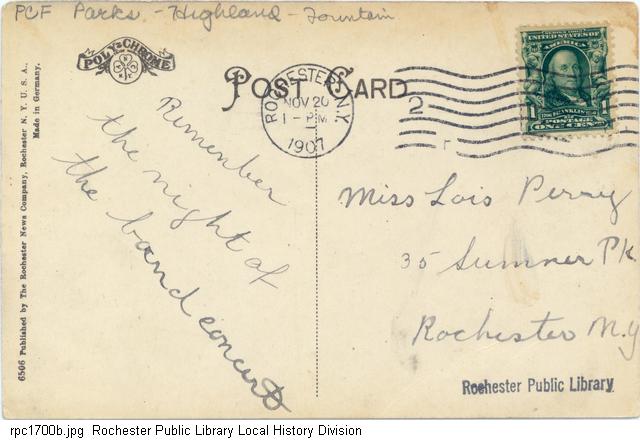 PCF Parks - Highland - Fountain
POLY-CHROME
POST CARD
ROCHESTER, N.Y.
NOV 20
1 - PM
1907
2
UNITED STATES OF
AMERICA
1
1
POSTAGE
ONE CENT
Remember
the night of
the band concert
Miss Lois Perry
35 Sumner Pk
Rochester N.Y
Rochester Public Library
6506 Published by The Rochester News Company, Rochester N. Y. U. S. A.,
Made in Germany.
rpc1700b.jpg Rochester Public Library Local History Division